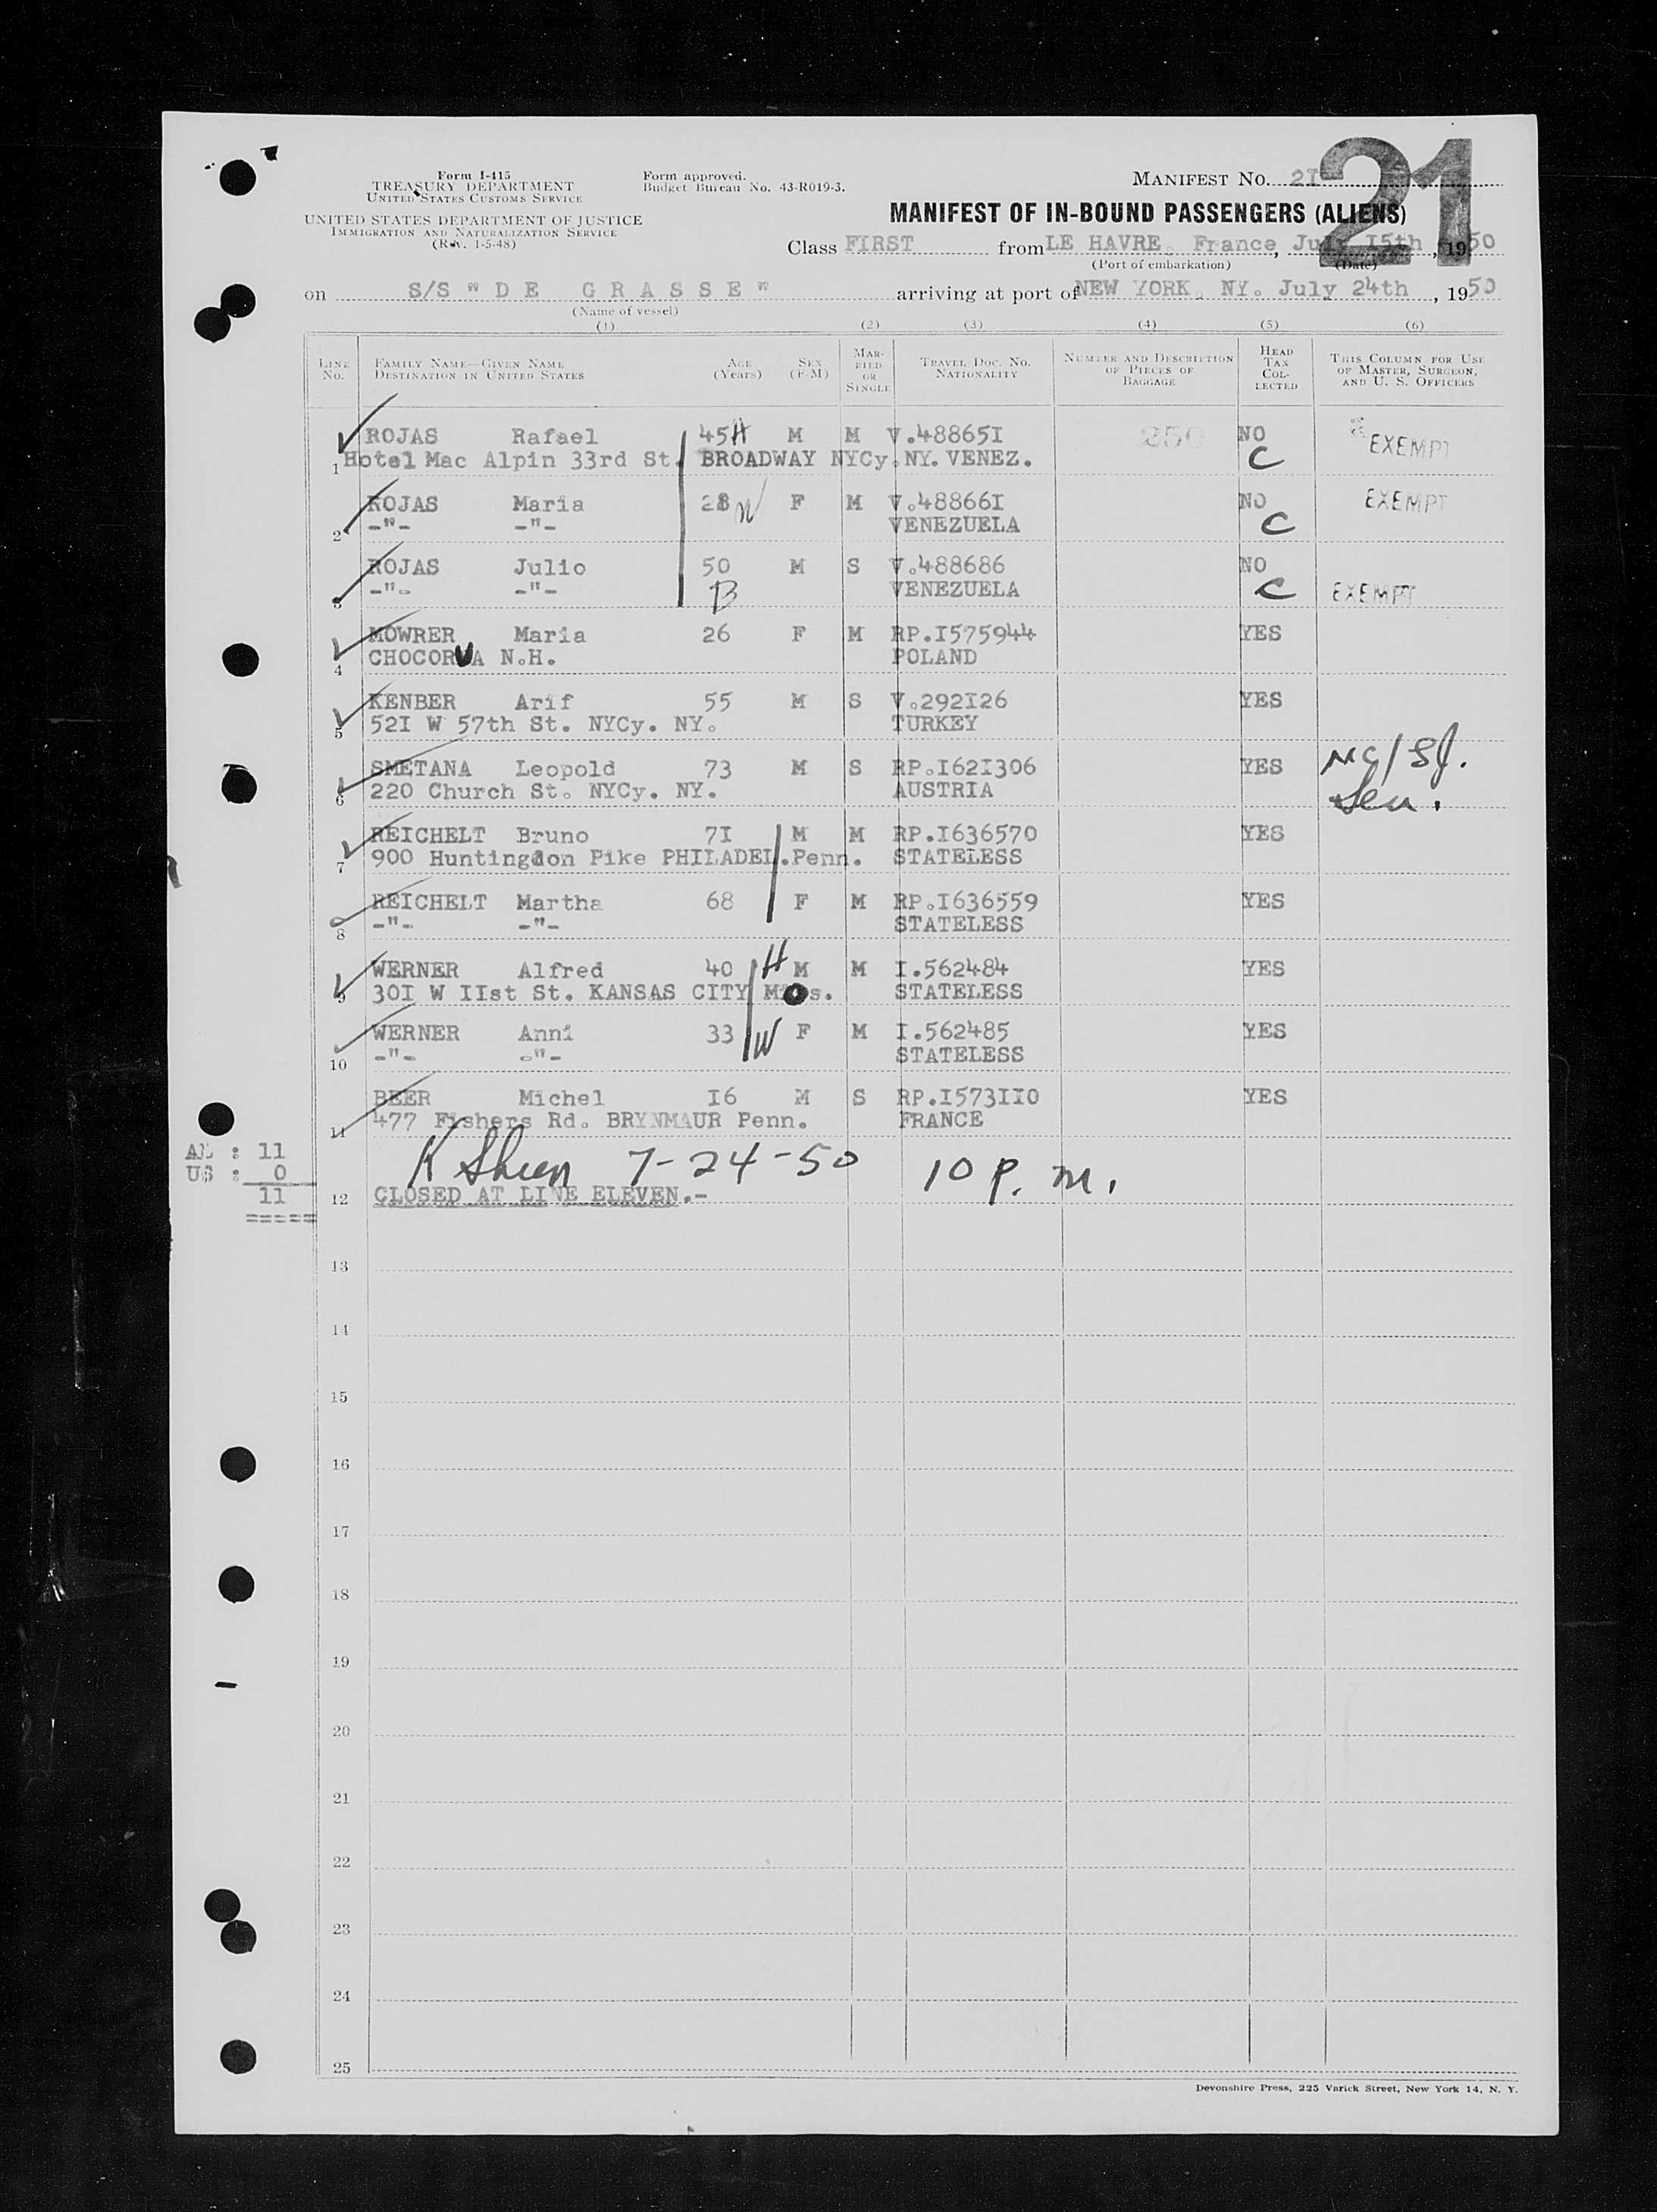 Form I-415
TREASURY DEPARTMENT
UNITED STATES CUSTOMS SERVICE
UNITED STATES DEPARTMENT OF JUSTICE
IMMIGRATION AND NATURALIZATION SERVICE
(Rev. 1-5-48)
Form approved.
Budget Bureau No. 43-R019-3.
MANIFEST NO. 2I
21
MANIFEST OF IN-BOUND PASSENGERS (ALIENS)
Class FIRST from LE HAVRE, France, July I5th, 1950
(Port of embarkation) (Date)
on S/S "DE GRASSE" arriving at port of NEW YORK, NY. July 24th, 1950
(Name of vessel)
(1) (2) (3) (4) (5) (6)
LINE No. FAMILY NAME—GIVEN NAME DESTINATION IN UNITED STATES AGE (Years) SEX (F-M) MARRIED OR SINGLE TRAVEL DOC. NO. NATIONALITY NUMBER AND DESCRIPTION OF PIECES OF BAGGAGE HEAD TAX COLLECTED THIS COLUMN FOR USE OF MASTER, SURGEON, AND U. S. OFFICERS
ROJAS Rafael 45 H M M V.48865I 250 NO EXEMPT
1 Hotel Mac Alpin 33rd St. BROADWAY NYCy.NY. VENEZ. C
ROJAS Maria 28 W F M V.48866I NO EXEMPT
2 -"- -"- VENEZUELA C
ROJAS Julio 50 M S V.488686 NO
3 -"- -"- B VENEZUELA C EXEMPT
MOWRER Maria 26 F M RP.I575944 YES
4 CHOCORUA N.H. POLAND
KENBER Arif 55 M S V.292I26 YES
5 52I W 57th St. NYCy. NY. TURKEY
SMETANA Leopold 73 M S RP.I62I306 YES
6 220 Church St. NYCy. NY. AUSTRIA
REICHELT Bruno 7I M M RP.I636570 YES
7 900 Huntingdon Pike PHILADEL.Penn. STATELESS
REICHELT Martha 68 F M RP.I636559 YES
8 -"- -"- STATELESS
WERNER Alfred 40 H M M I.562484 YES
9 30I W IIst St. KANSAS CITY Mos. STATELESS
WERNER Anni 33 W F M I.562485 YES
10 -"- -"- STATELESS
BEER Michel I6 M S RP.I573II0 YES
11 477 Fishers Rd. BRYNMAUR Penn. FRANCE
AL : 11
US : 0
11
=====
7-24-50 10 P. m.
12 CLOSED AT LINE ELEVEN.-
13
14
15
16
17
18
19
20
21
22
23
24
25
Devonshire Press, 225 Varick Street, New York 14, N. Y.